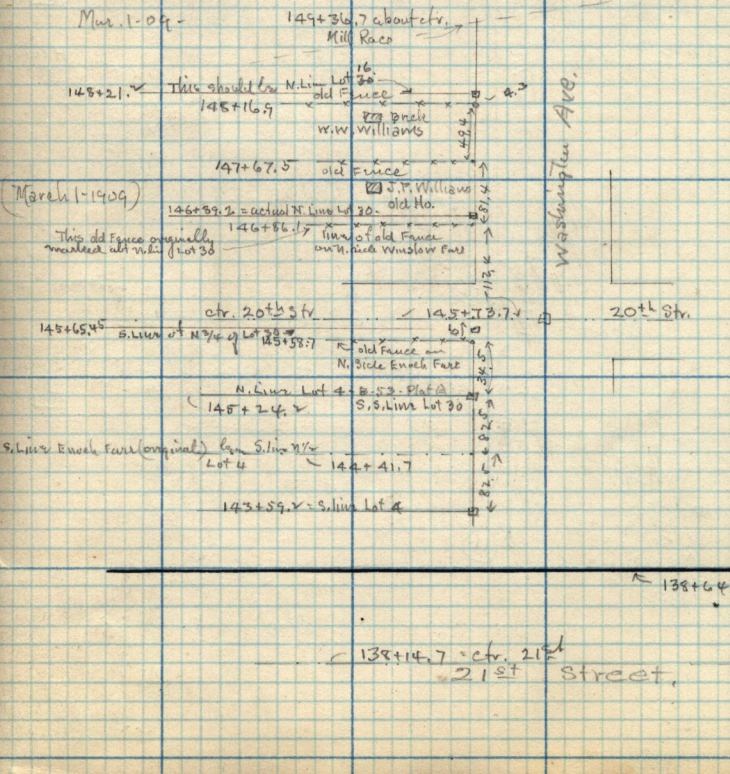 Mar. 1-09-
149+36.7 about ctr.
Mill Race
16
148+21.2 This should be N. Line Lot 30.
old Fence
4.3
148+16.9
Brick
W.W. Williams
49.4
Washington Ave.
147+67.5 old Fence
(March 1-1909)
J.P. Williams
old Ho.
81.4
146+89.2 = actual N. Line Lot 30.
146+86.1
line of old Fence
on N. side Winslow Farr
This old Fence originally
marked abt N. line of Lot 30
113.4
ctr. 20th Str 145+73.7 20th Str.
145+65.45 S. Line of N 3/4 of Lot 30
145+58.7
old Fence on
N. Side Enoch Farr
34.5
N. Line Lot 4 - B-53- Plat A
145+24.2 S.S. Line Lot 30
82.5
S. Line Enoch Farr (original) S. line N 1/2
Lot 4 144+41.7
82.5
143+59.2 = S. line Lot 4
138+64
138+14.7 = ctr. 21st
21st Street.